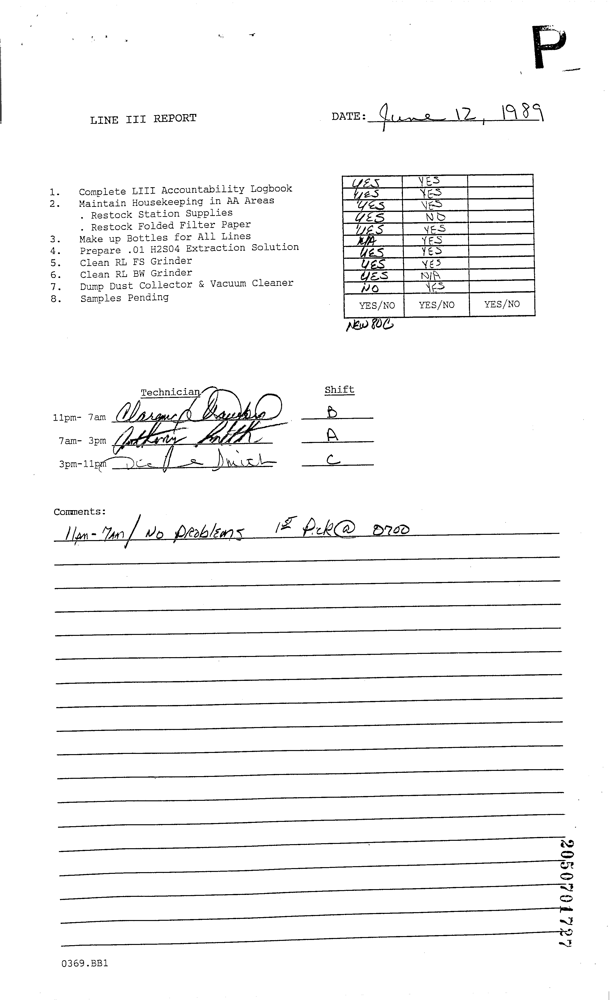 P
LINE III REPORT
DATE: June 12, 1989
1. Complete LIII Accountability Logbook
2. Maintain Housekeeping in AA Areas
. Restock Station Supplies
. Restock Folded Filter Paper
3. Make up Bottles for All Lines
4. Prepare .01 H2S04 Extraction Solution
5. Clean RL FS Grinder
6. Clean RL BW Grinder
7. Dump Dust Collector & Vacuum Cleaner
8. Samples Pending
YES YES
YES YES
YES YES
YES NO
YES YES
N/A YES
YES YES
YES YES
YES N/A
NO YES
YES/NO YES/NO YES/NO
NEW 80C
Technician Shift
11pm- 7am Clarence B
7am- 3pm Anthony Smith A
3pm-11pm Smith C
Comments:
11pm-7am/ No Problems 1st Pick@ 0700
2050701727
0369.BB1